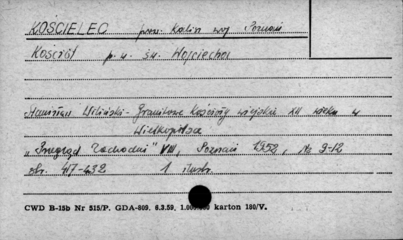 KOŚCIELEC pow. Kalisz woj. Poznań
Kościół p. w. św. Wojciecha
Stanisław Wiliński - Granitowe kościoły wiejskie XII wieku w
Wielkopolsce
"Przegląd Zachodni" VIII, Poznań 1952, Nr 9-12
str. 417-432 1 ilustr.
CWD B-15b Nr 515/P. GDA-809. 6.3.59. karton 180/V.